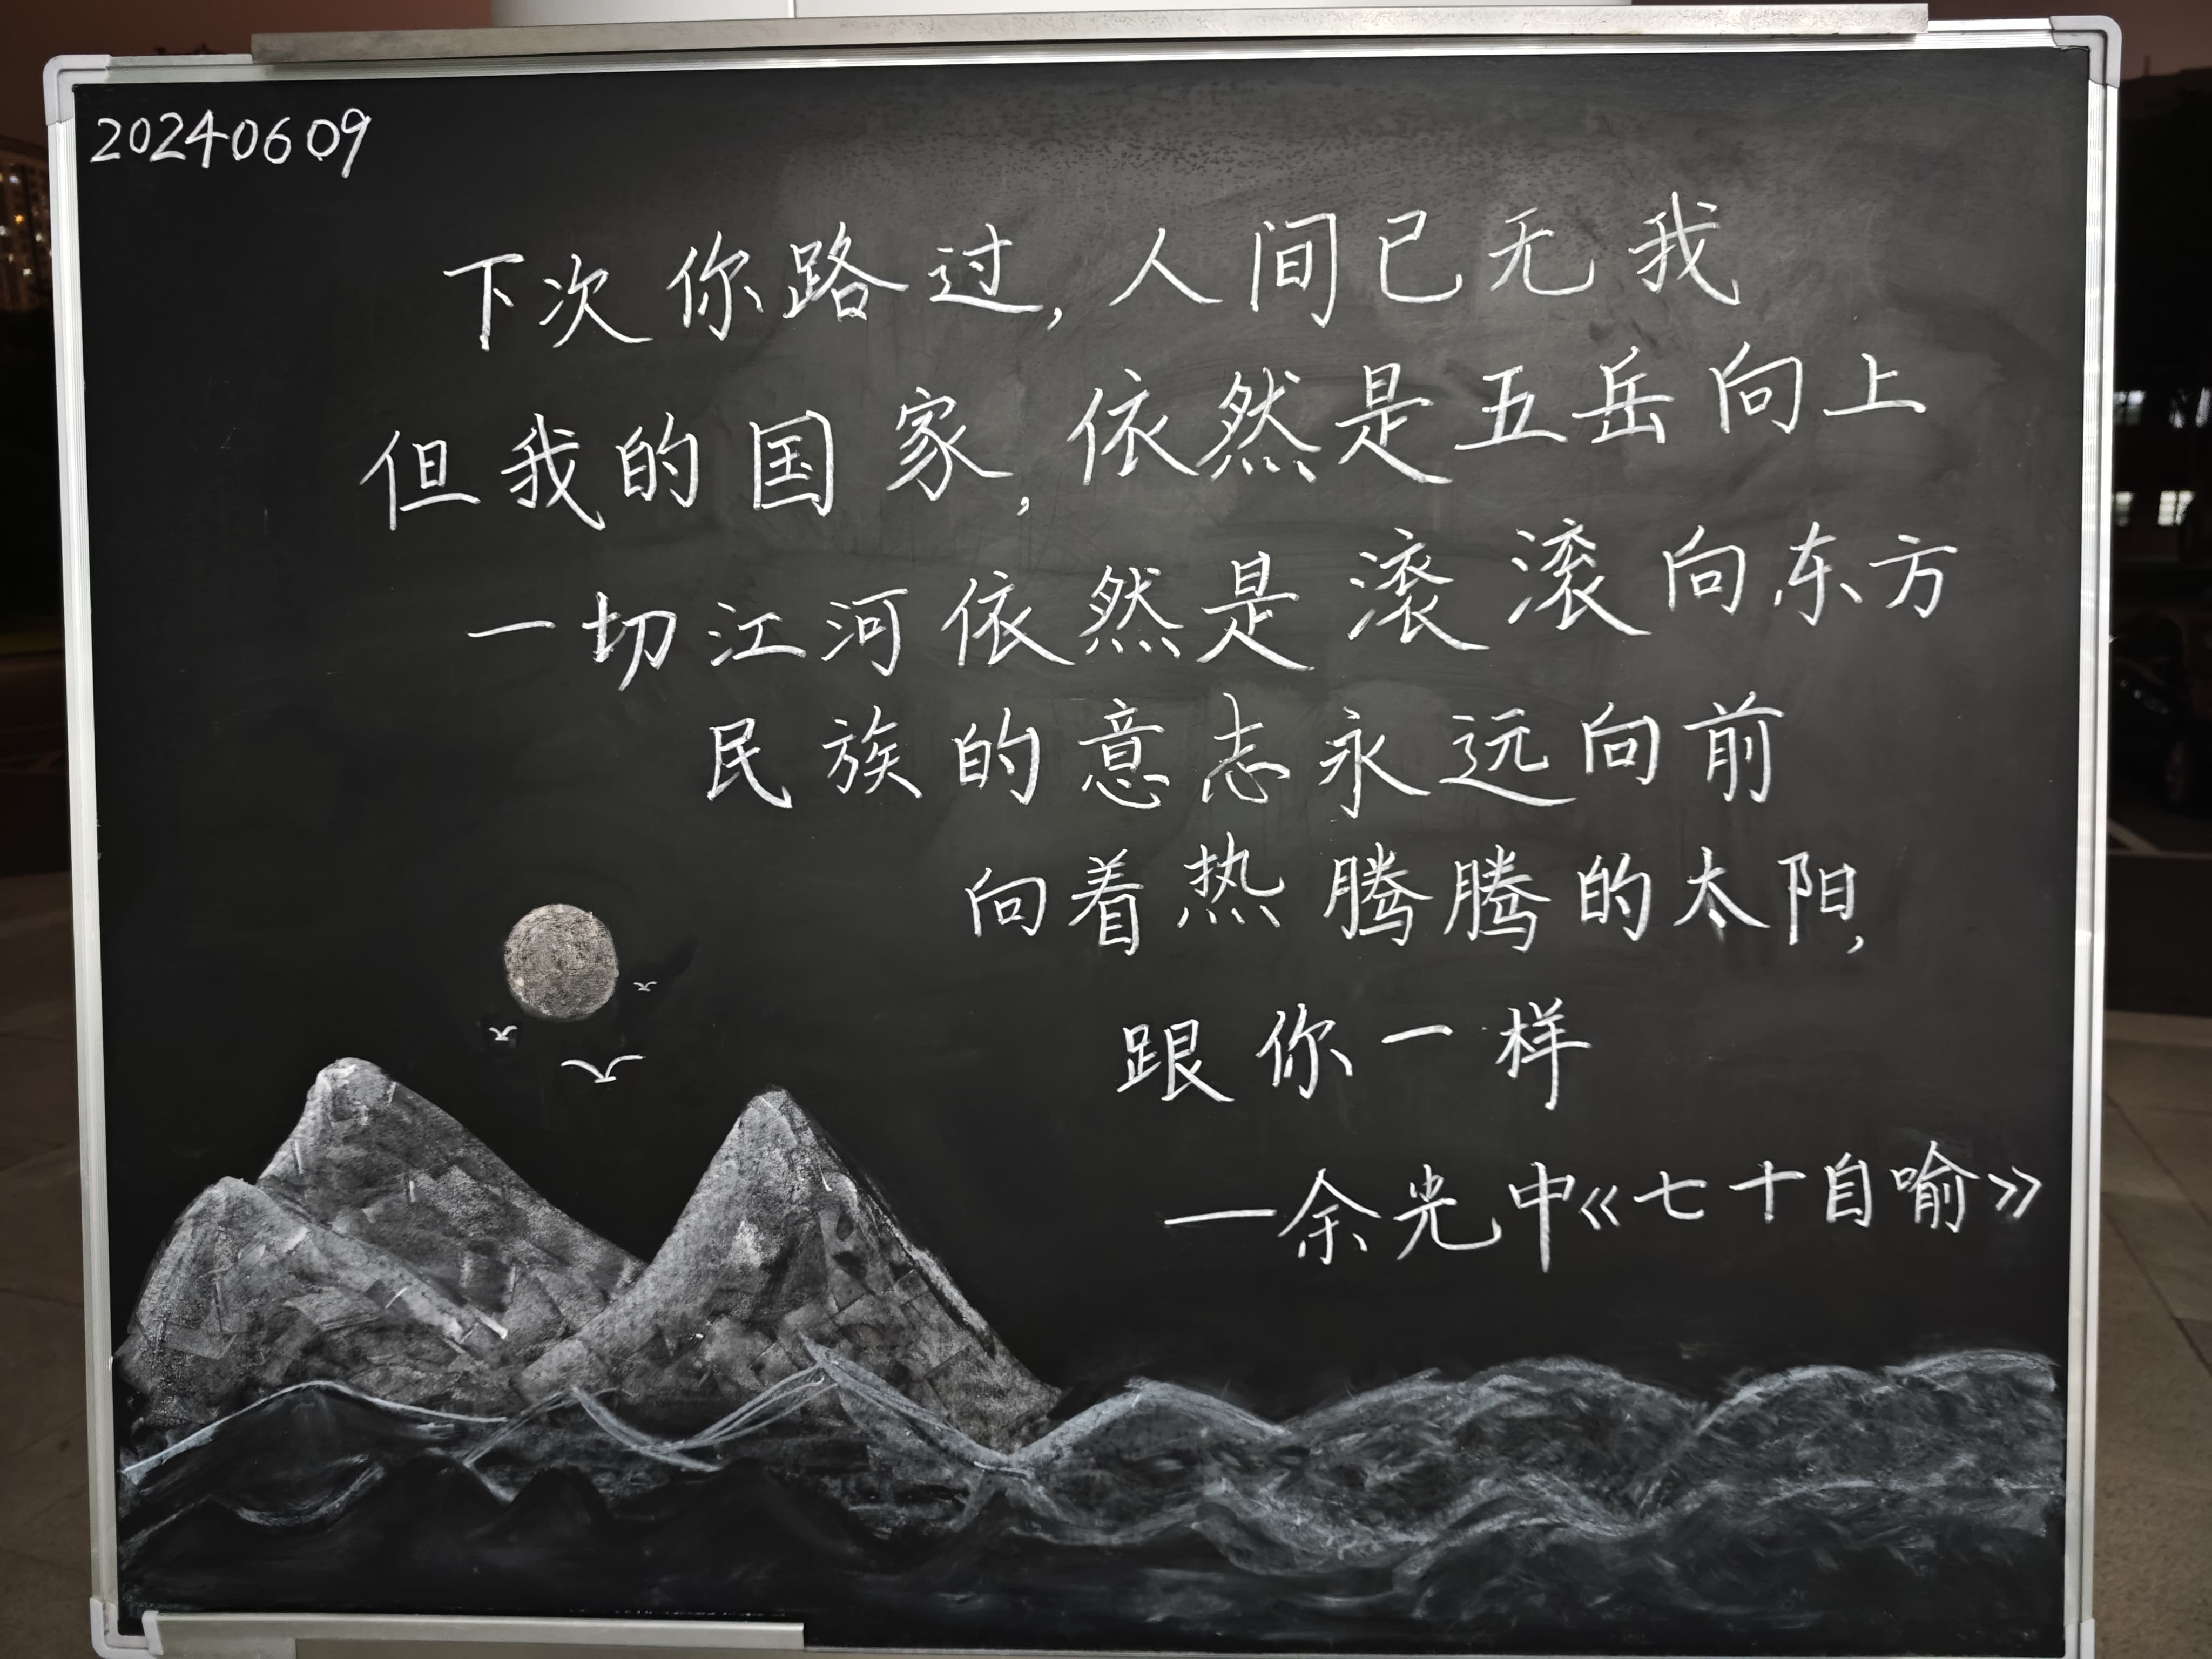 20240609
下次你路过,人间已无我
但我的国家,依然是五岳向上
一切江河依然是滚滚向东方
民族的意志永远向前
向着热腾腾的太阳,
跟你一样
—余光中《七十自喻》